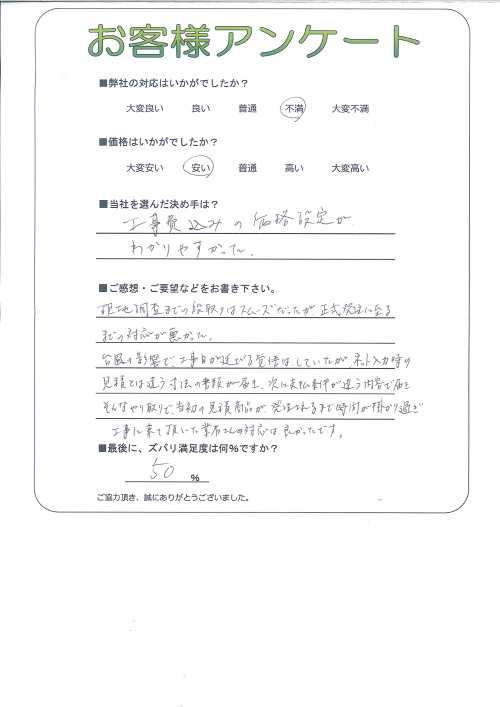 お客様アンケート
■弊社の対応はいかがでしたか？
大変良い 良い 普通 不満 大変不満
■価格はいかがでしたか？
大変安い 安い 普通 高い 大変高い
■当社を選んだ決め手は？
工事費込みの価格設定が
わかりやすかった。
■ご感想・ご要望などをお書き下さい。
現地調査までの段取りはスムーズだったが正式発注に至る
までの対応が悪かった。
台風の影響で、工事日が延びる覚悟はしていたがネット入力時の
見積とは違う寸法の書類が届き、次に支払条件が違う内容で届き
そんなやり取りで、当初の見積商品が発注されるまで時間が掛かり過ぎ
工事に来て頂いた業者さんの対応は良かったです。
■最後に、ズバリ満足度は何%ですか？
50 %
ご協力頂き、誠にありがとうございました。